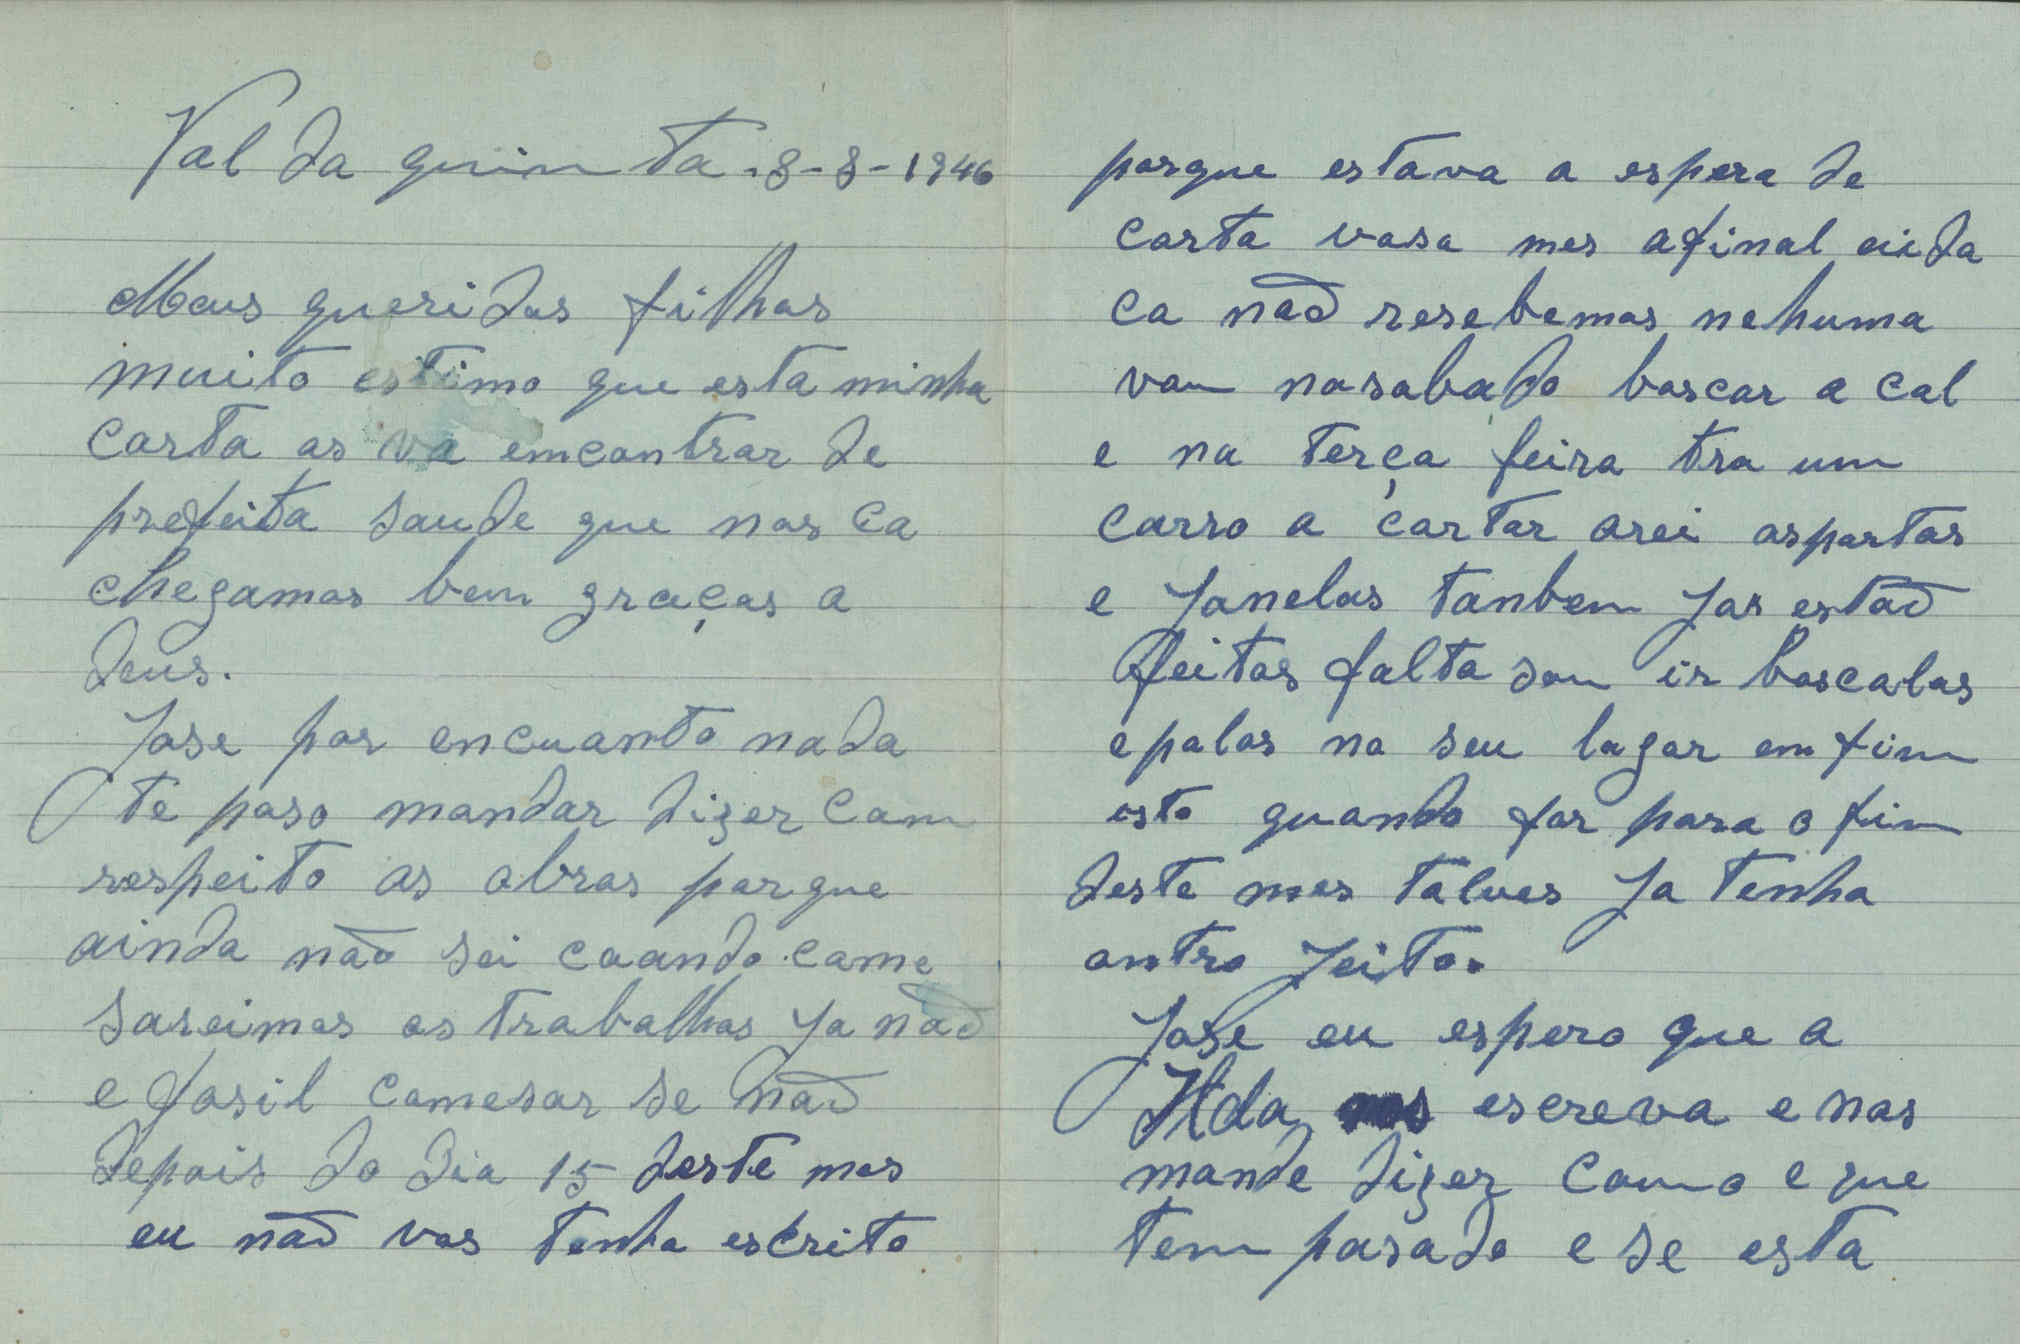 Val da quinta -8-8-1946
Meus queridos filhos
muito estimo que esta minha
carta os va emcontrar de
prefeita saude que nos ca
chegamos bem graças a
deus.
Jose por encuanto nada
te poso mandar dizer com
respeito as obras porque
ainda não sei coando come
sareimos os trabalhos ja não
e fasil comesar se não
depois do dia 15 deste mes
eu não vos tenho escrito
porque estava a espera de
carta vosa mes afinal aida
ca não resebemos nehuma
vou nosabado boscar a cal
e na terça feira tra um
carro a cartar arei asportas
e janelas tanbem jas estão
feitas falta sou ir boscalas
epolas no seu lugar em fim
isto quando for para o fim
deste mes talves ja tenha
outro jeito.
Jose eu espero que a
Ilda nos escreva e nos
mande dizer como e que
tem pasado e se esta